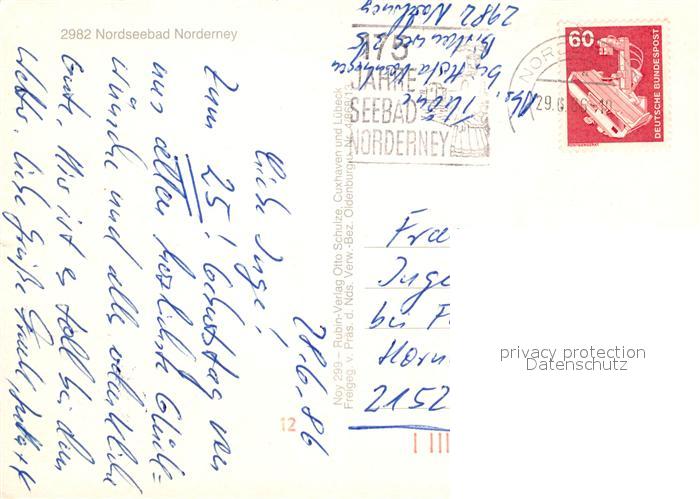 2982 Nordseebad Norderney
28.6.86
Liebe Inge!
Zum 25! Geburtstag von
uns allen herzlichste Glück-
wünsche und alles erdenkliche
Gute. Hier ist es toll bei dem
Wetter. Liebe Grüße
Ney 299 – Rubin-Verlag Otto Schulze, Cuxhaven und Lübeck
Freigeg. v. Präs. d. Nds. Verw.-Bez. Oldenburg
Abs.:
bei
2982 Norderney
175
JAHRE
SEEBAD
NORDERNEY
NOR
29.6.86-18
60
DEUTSCHE BUNDESPOST
RÖNTGENGERÄT
Fra
Inge
bei F
Horn
2152
12
privacy protection
Datenschutz